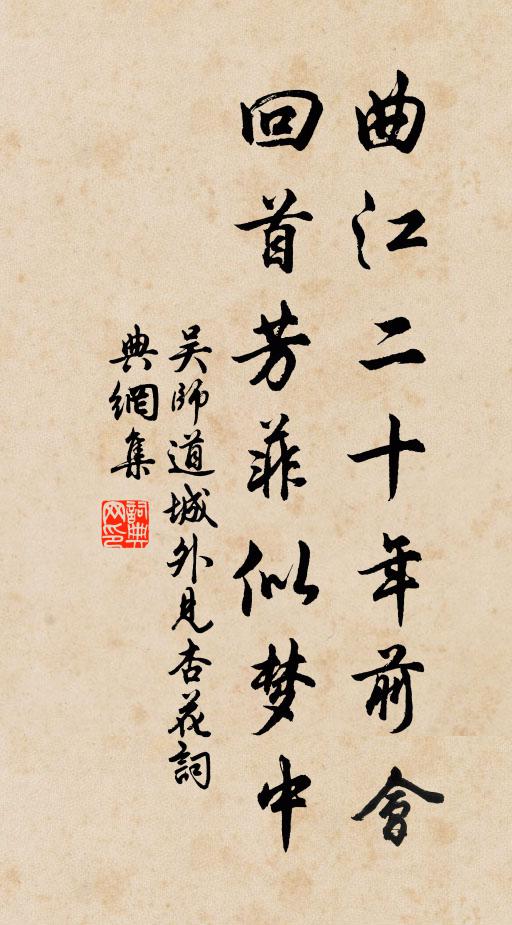 曲江二十年前會
回首芳菲似梦中
吴師道城外見杏花詞
典網集
詞典網印